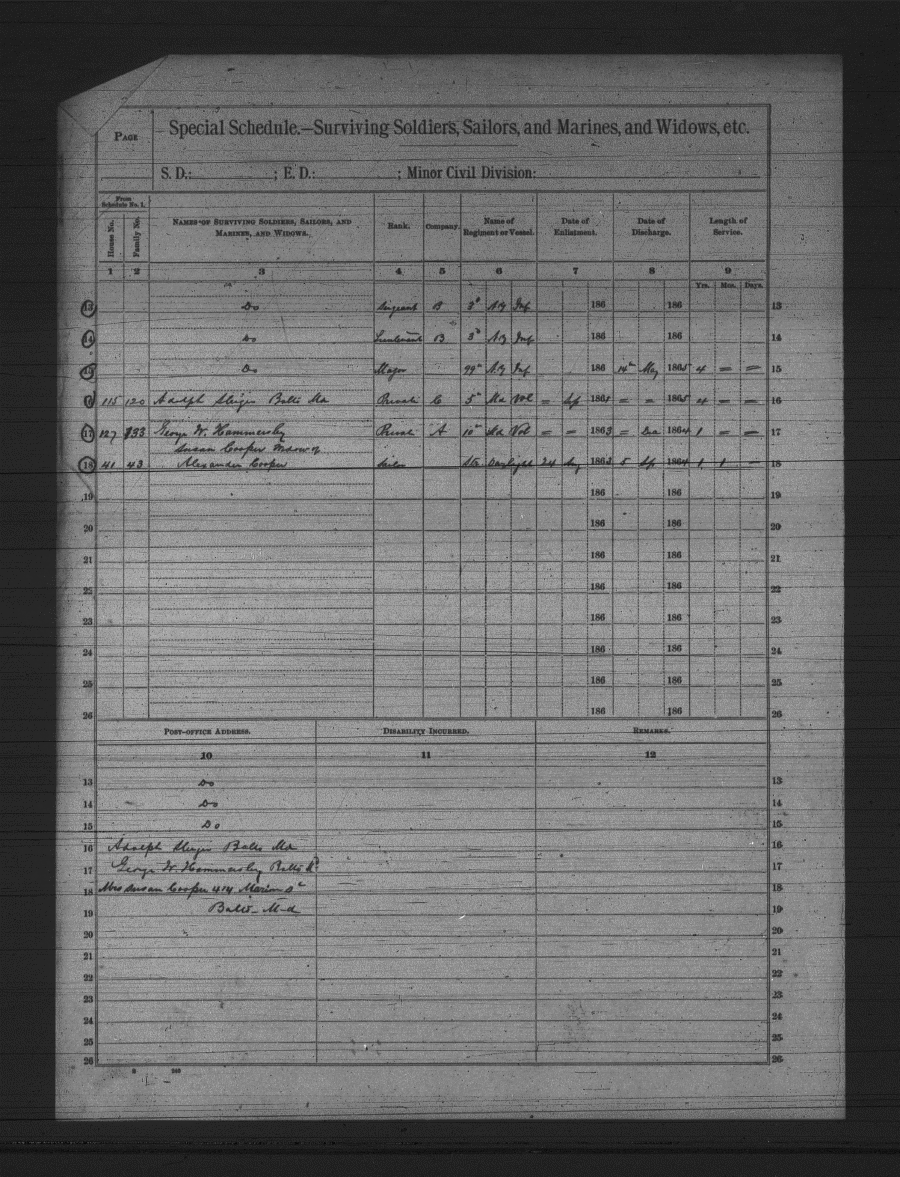 PAGE
Special Schedule.—Surviving Soldiers, Sailors, and Marines, and Widows, etc.
S. D.: ; E. D.: ; Minor Civil Division:
From Schedule No. 1.
House No. Family No. NAMES OF SURVIVING SOLDIERS, SAILORS, AND MARINES, AND WIDOWS. Rank. Company. Name of Regiment or Vessel. Date of Enlistment. Date of Discharge. Length of Service.
1 2 3 4 5 6 7 8 9
Yrs. Mos. Days.
13 Do Sergeant B 3d N.Y Inf 186 186 13
14 Do Lieutenant B 3d N.Y Inf 186 186 14
15 Do Major 99th N.Y Inf 186 14th May 1865 4 = = 15
16 115 120 Adolph Balto Md Private C 5th Md Vol = Sep 1861 = = 1865 4 = = 16
17 127 133 George W. Hammersley Private A 10th Md Vol = = 1863 = 1864 1 = = 17
Susan Cooper Widow of
18 41 43 Alexander Cooper Str Daylight 24 Aug 1863 5 Sep 1864 1 1 — 18
19 186 186 19
20 186 186 20
21 186 186 21
22 186 186 22
23 186 186 23
24 186 186 24
25 186 186 25
26 186 186 26
POST-OFFICE ADDRESS. DISABILITY INCURRED. REMARKS.
10 11 12
13 Do 13
14 Do 14
15 Do 15
16 Adolph Balto Md 16
17 George W. Hammersley Balto Md 17
18 Mrs Susan Cooper 414 Marion St 18
19 Balto Md 19
20 20
21 21
22 22
23 23
24 24
25 25
26 26